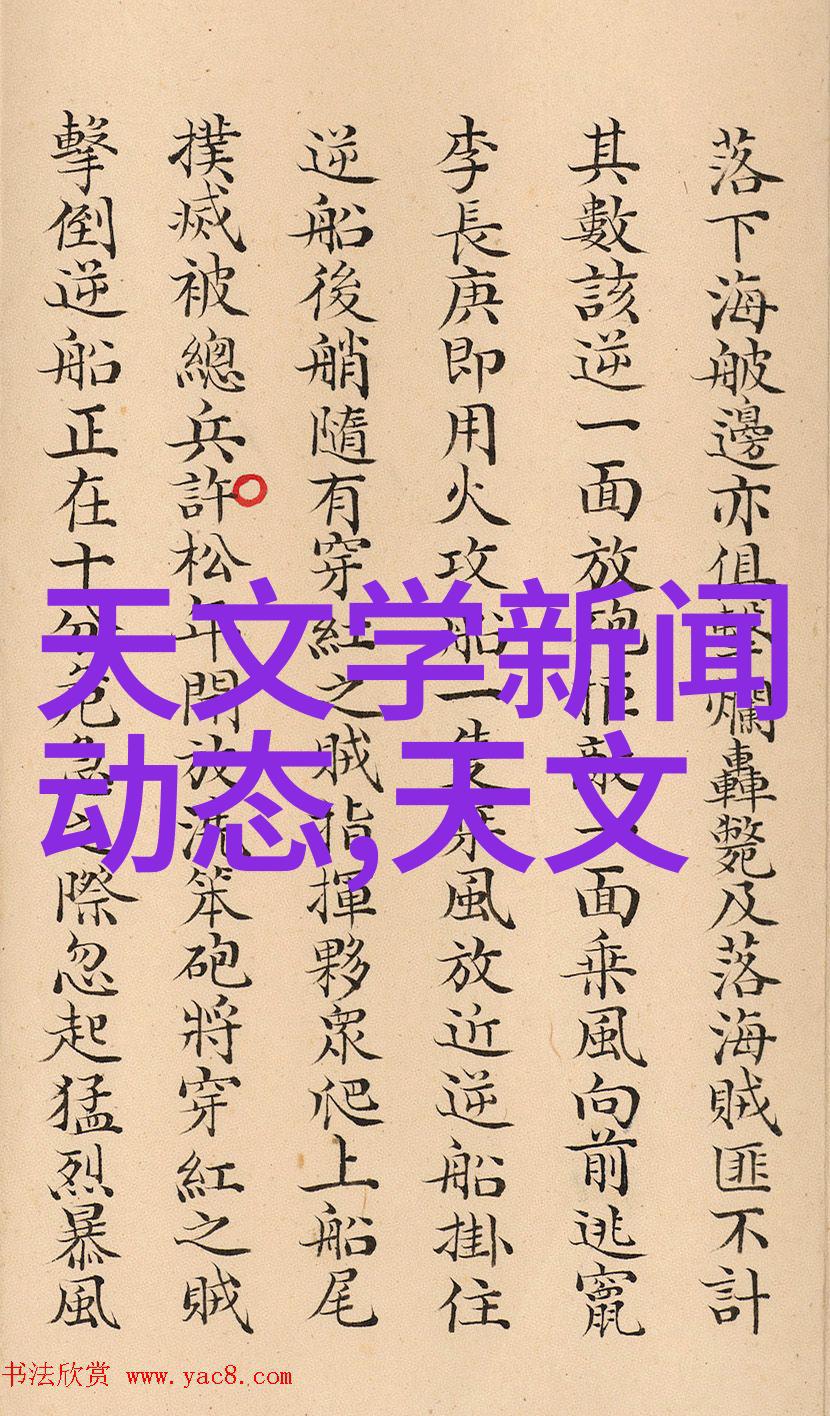 落下海舨邊亦俱擊爛轟斃及落海賊匪不計
其數該逆一面放砲拒敵一面乘風向前逃竄
李長庚即用火攻船一隻乘風放近逆船掛住
逆船後艄隨有穿紅之賊指揮夥眾爬上船尾
撲滅被總兵許松年開放洗笨砲將穿紅之賊
擊倒逆船正在十分危急之際忽起猛烈暴風
天文学新闻
动态,天文
书法欣赏 www.yac8.com